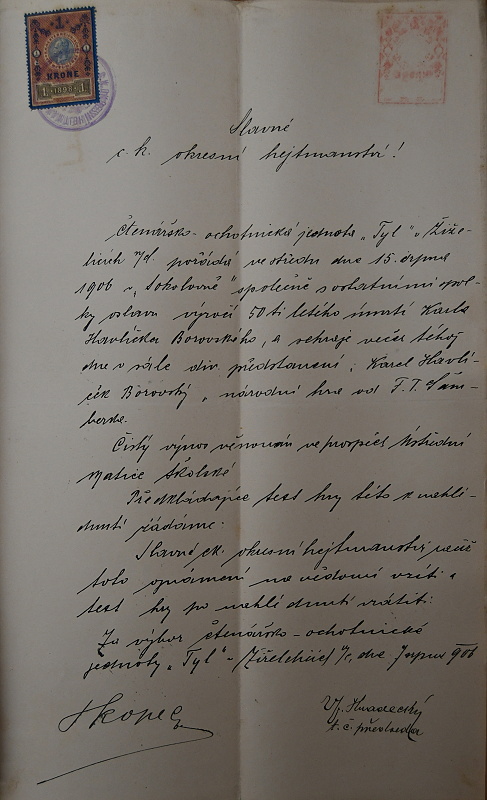 1
KRONE
1 1898 1
Slavné
c. k. okresní hejtmanství!
Čtenářsko-ochotnická jednota „Tyl" v Žiže-
licích n/C. pořádá ve středu dne 15. srpna
1906 v „Sokolovně" společně s ostatními spol-
ky oslavu výročí 50 ti letého úmrtí Karla
Havlíčka Borovského, a sehraje večer téhož
dne v sále div. představení: „Karel Havlí-
ček Borovský" národní hra od F. F. Šam-
berka.
Čistý výnos věnován ve prospěch Ústřední
Matice Školské
Předkládajíce text hry této k nahlí-
dnutí žádáme:
Slavné ck. okresní hejtmanství račiž
toto oznámení na vědomí vzíti a
text hry po nahlídnutí vrátiti:
Za výbor čtenářsko-ochotnické
jednoty „Tyl" dne srpna 906
Skopec
Hradecký
t. č. předseda